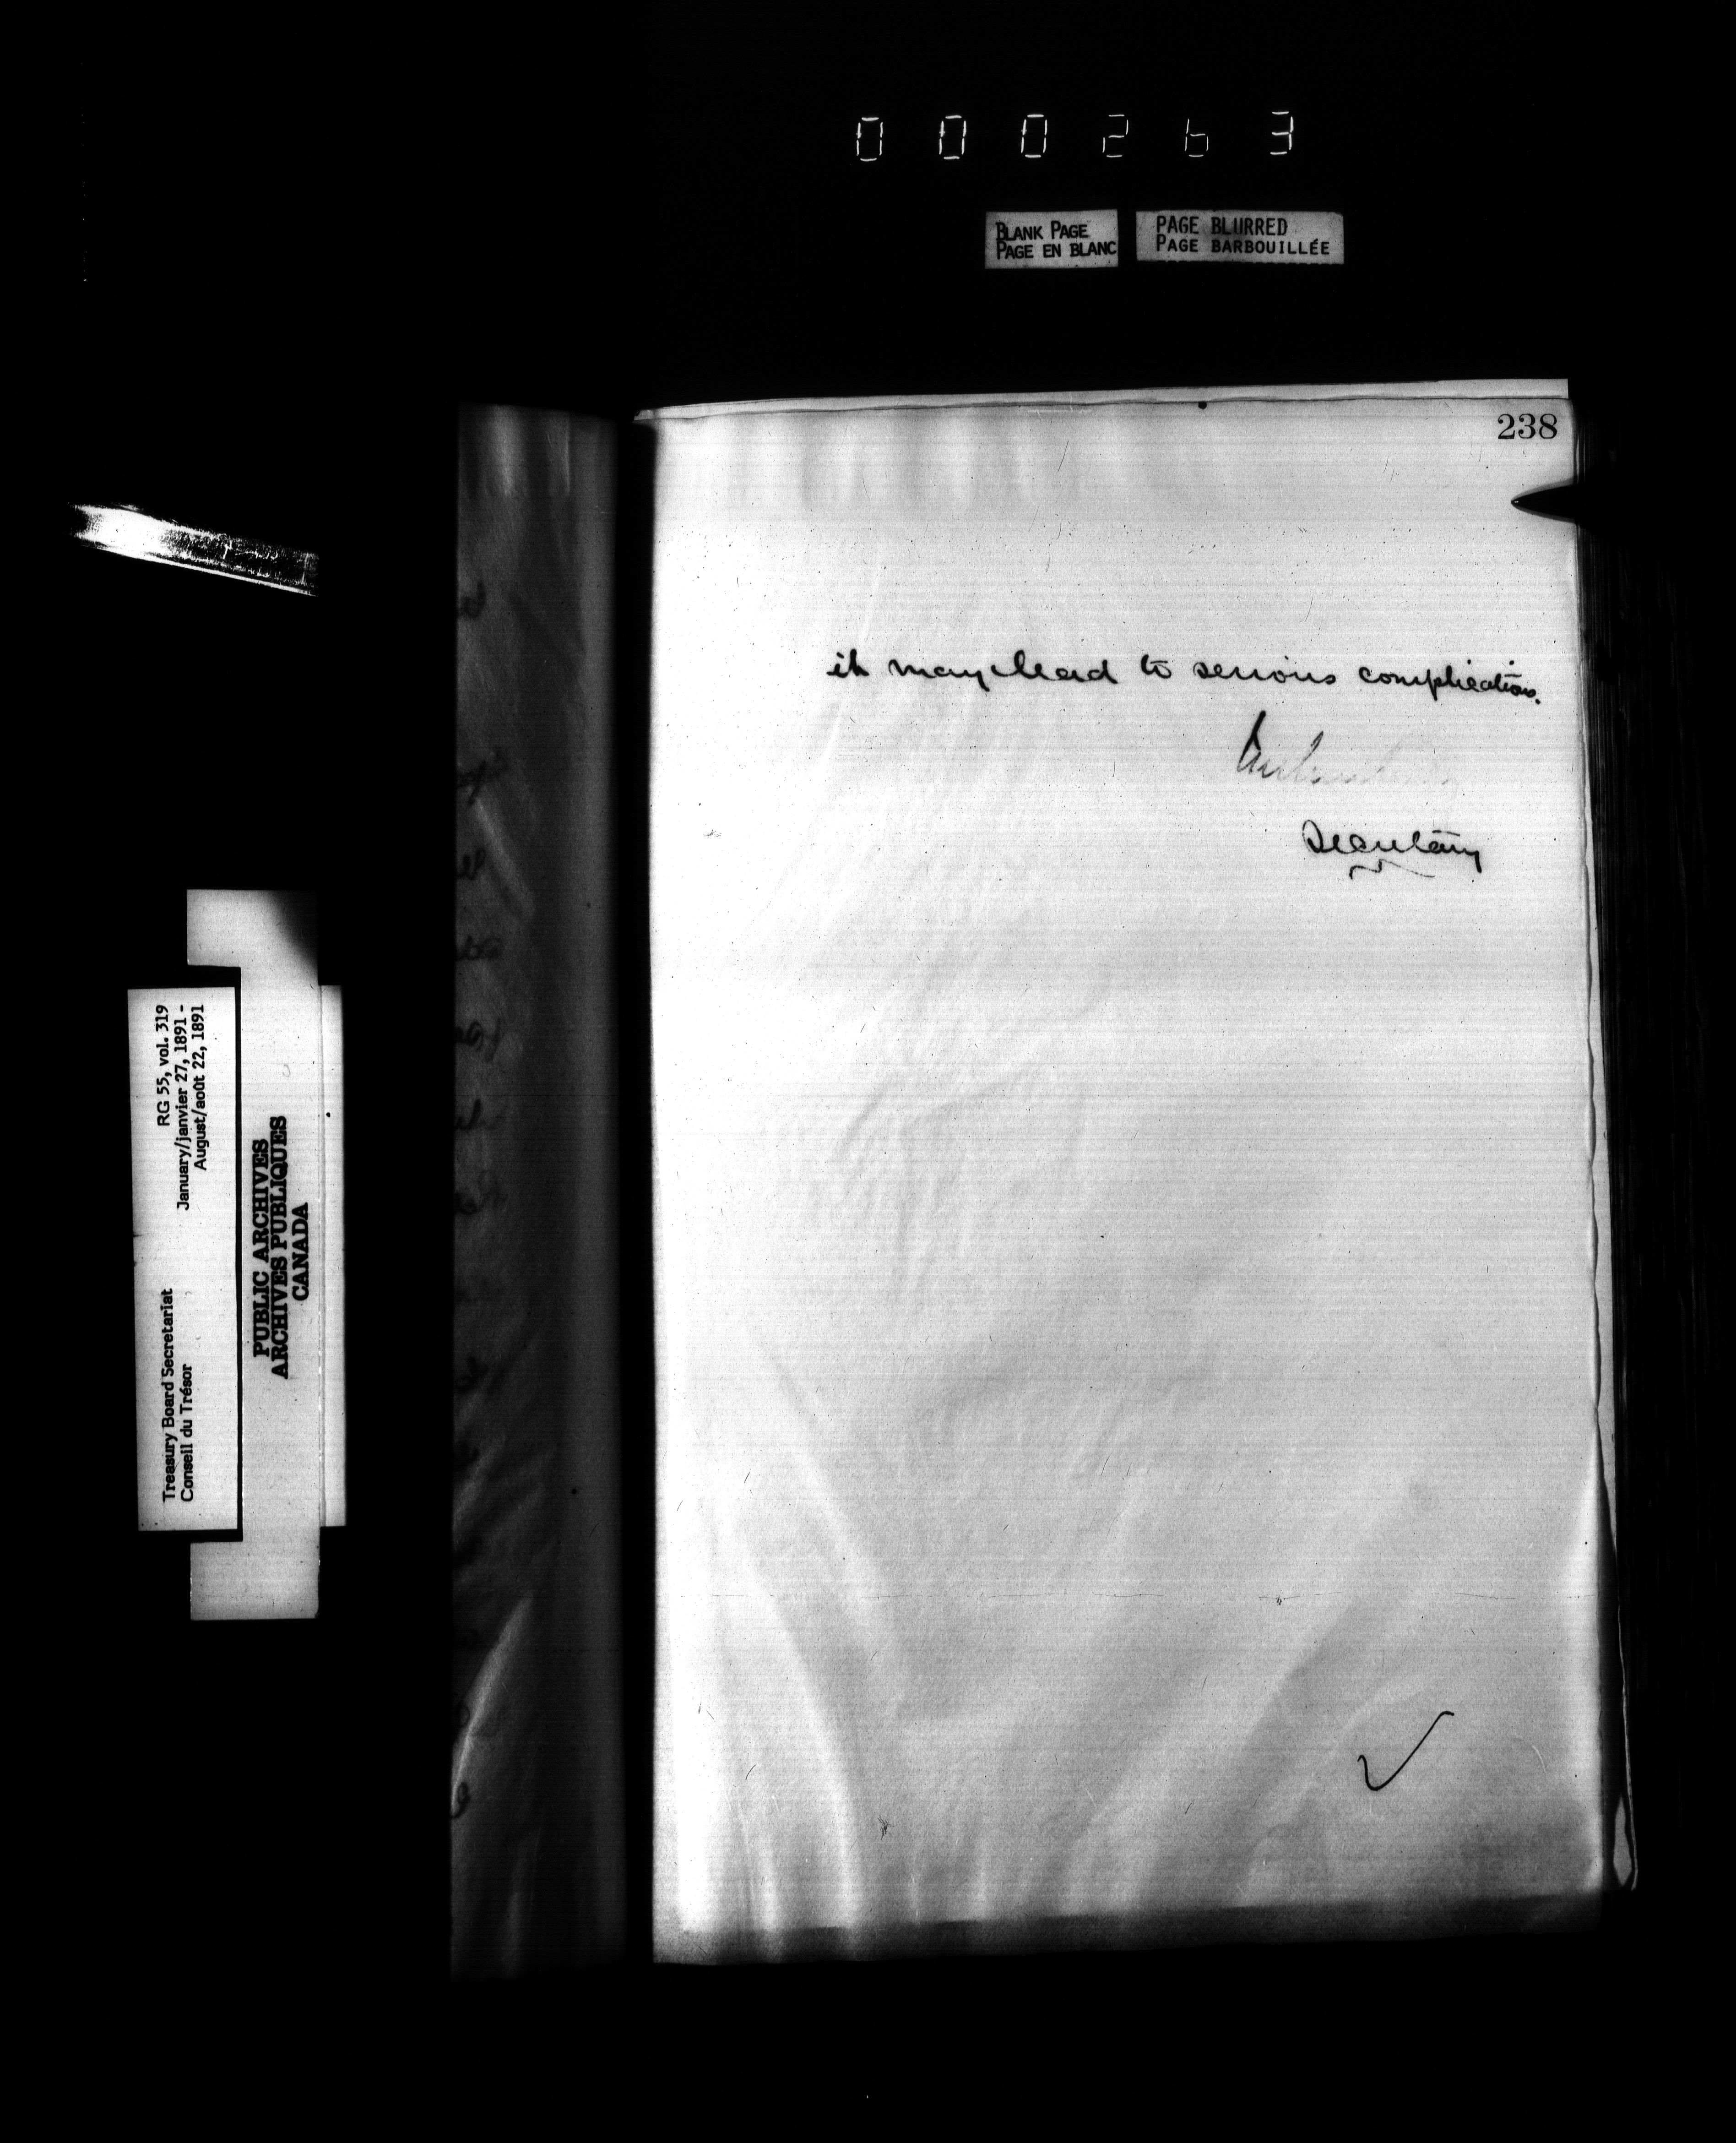 000263
BLANK PAGE
PAGE EN BLANC
PAGE BLURRED
PAGE BARBOUILLÉE
238
it may lead to serious complications.
Secretary
RG 55, vol. 319
January/janvier 27, 1891 -
August/août 22, 1891
Treasury Board Secretariat
Conseil du Trésor
PUBLIC ARCHIVES
ARCHIVES PUBLIQUES
CANADA